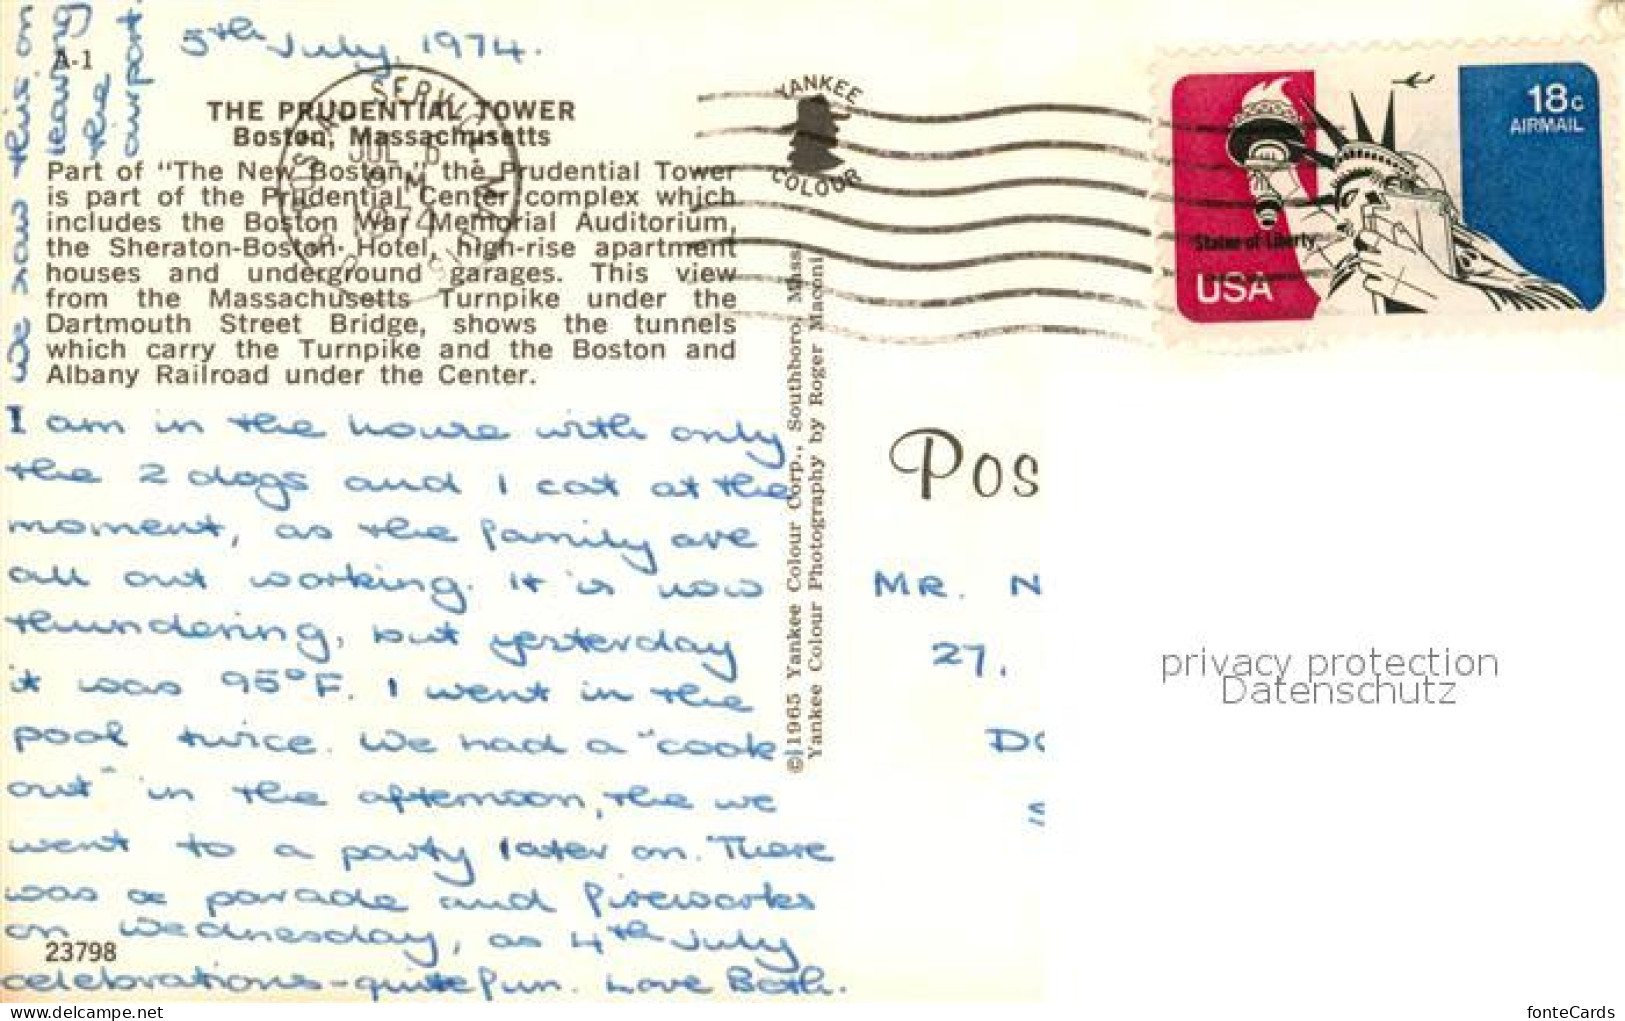 we saw this on
leaving
the
airport.
A-1
5th July, 1974.
THE PRUDENTIAL TOWER
Boston, Massachusetts
Part of "The New Boston," the Prudential Tower
is part of the Prudential Center complex which
includes the Boston War Memorial Auditorium,
the Sheraton-Boston Hotel, high-rise apartment
houses and underground garages. This view
from the Massachusetts Turnpike under the
Dartmouth Street Bridge, shows the tunnels
which carry the Turnpike and the Boston and
Albany Railroad under the Center.
I am in the house with only
the 2 dogs and 1 cat at the
moment, as the family are
all out working. It is now
thundering, but yesterday
it was 95°F. I went in the
pool twice. We had a "cook
out" in the afternoon, the we
went to a party later on. There
was a parade and fireworks
on Wednesday, as 4th July
celebrations - quite fun. Love Beth.
23798
JUL 6
PM
1974
YANKEE
COLOUR
©1965 Yankee Colour Corp., Southboro, Mass.
Yankee Colour Photography by Roger Maconi
18c
AIRMAIL
Statue of Liberty
USA
Pos
MR. N
27.
DO
S
privacy protection
Datenschutz
www.delcampe.net
fonteCards